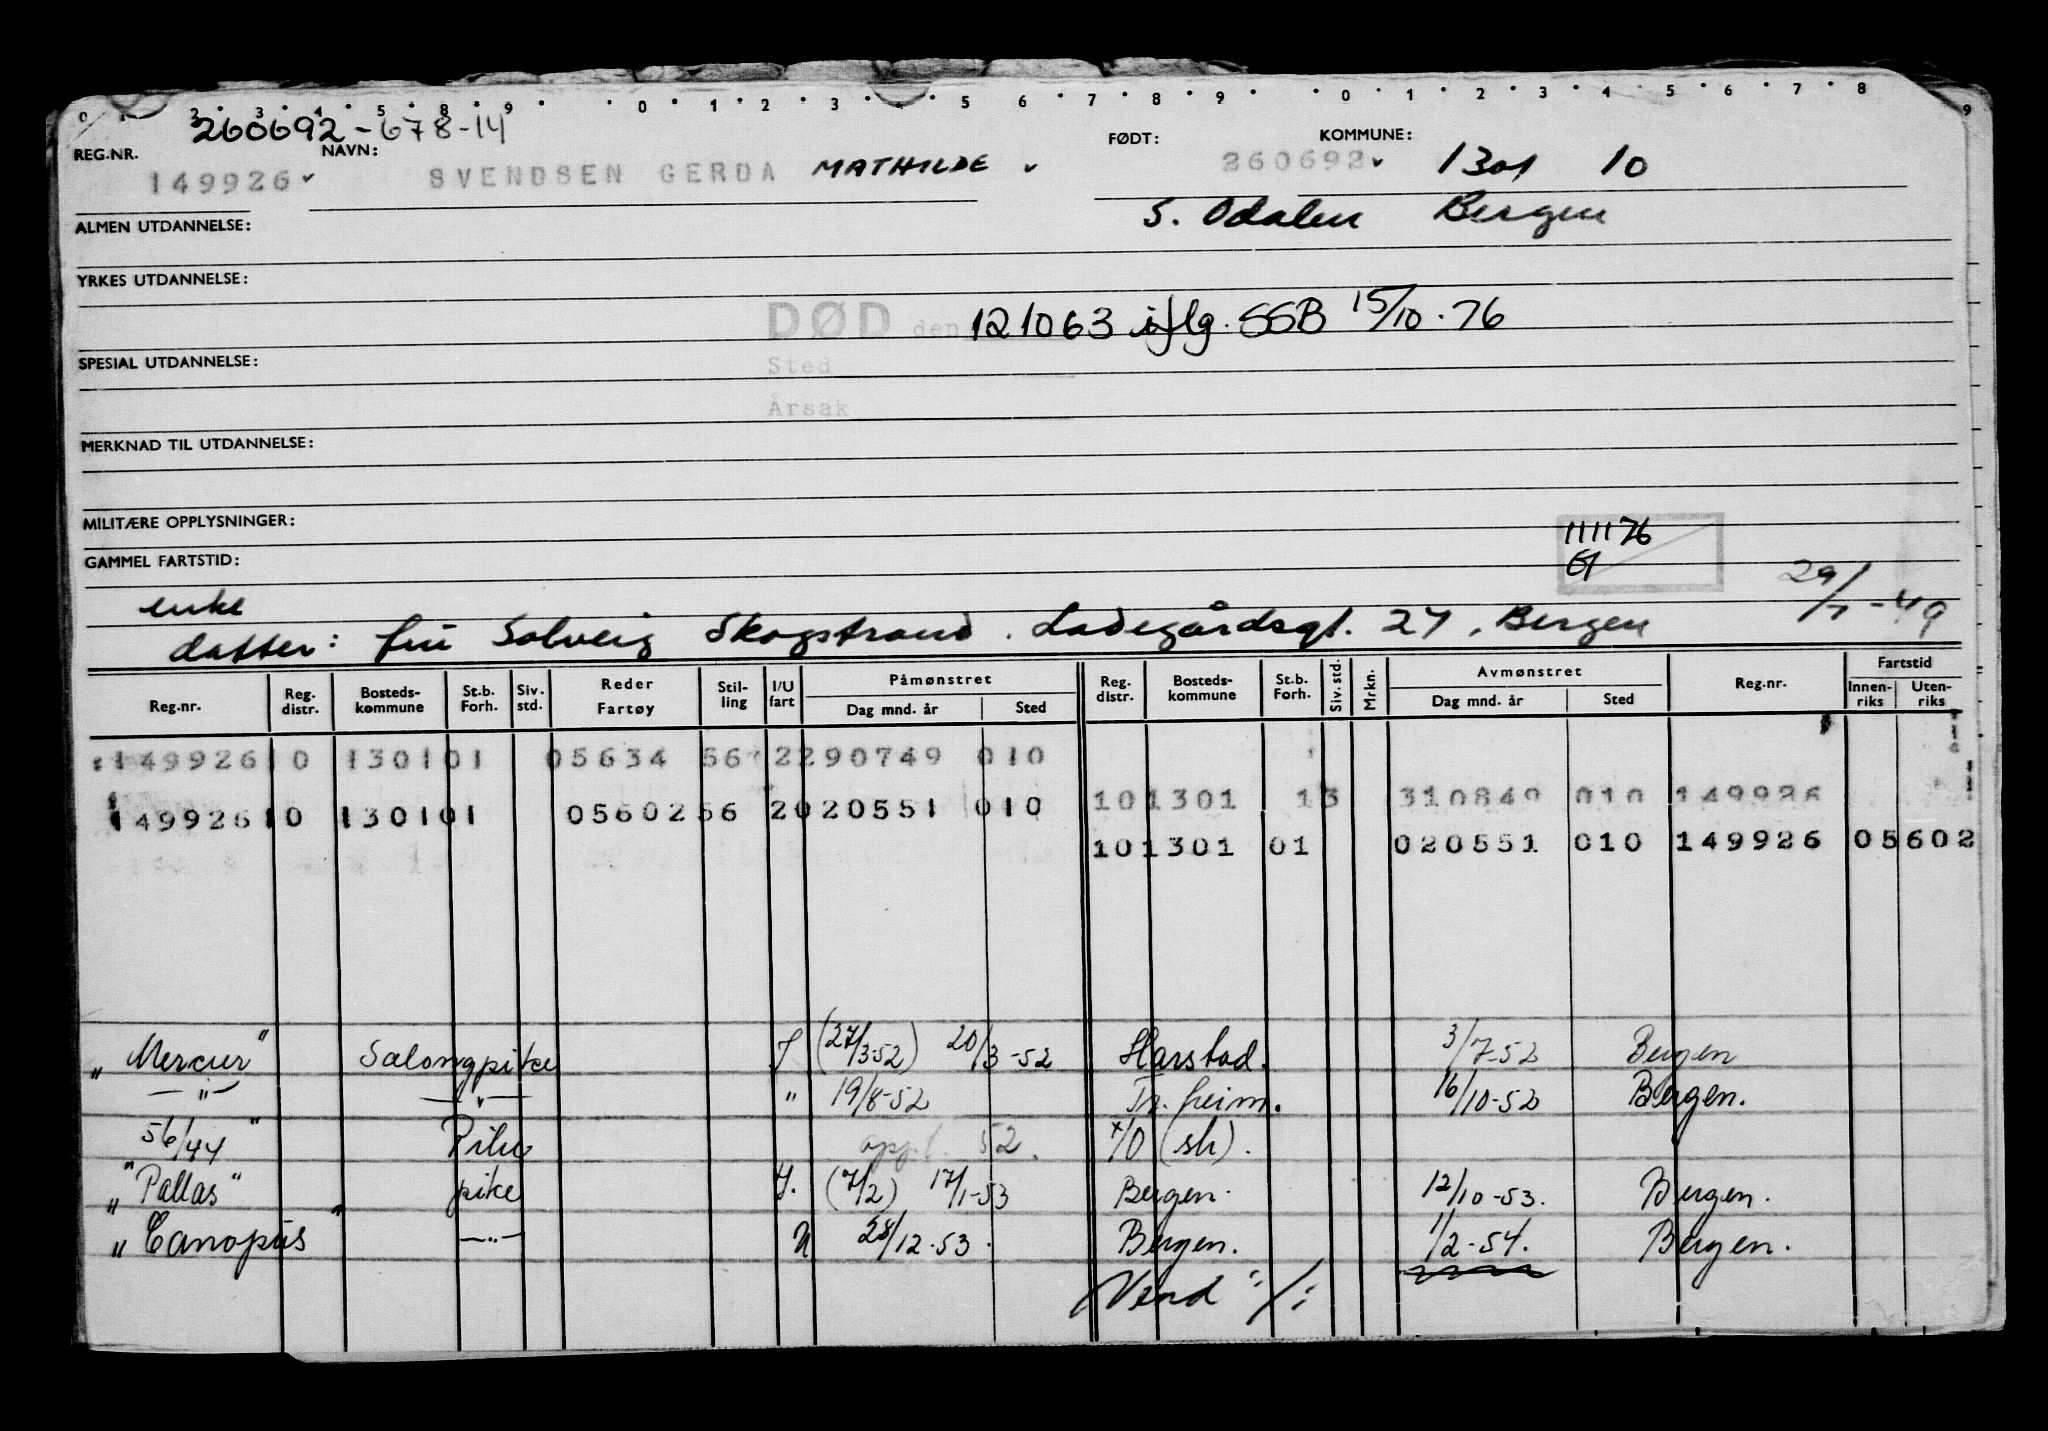 0 3 3 4 5 8 9 0 1 2 3 4 5 6 7 8 9 0 1 2 3 4 5 6 7 8 9
260692-678-14
REG.NR. NAVN: FØDT: KOMMUNE:
149926 SVENDSEN GERDA MATHILDE 260692 1301 10
ALMEN UTDANNELSE: S. Odalen Bergen
YRKES UTDANNELSE:
DØD den 121063 iflg. SSB 15/10.76
SPESIAL UTDANNELSE: Sted
Årsak
MERKNAD TIL UTDANNELSE:
MILITÆRE OPPLYSNINGER: 111176
GAMMEL FARTSTID:
enke 29/7-49
datter: fru Solveig Skogstrand. Ladegårdsgt. 27, Bergen
Reg.nr. Reg. distr. Bosteds-kommune St.b. Forh. Siv. std. Reder Fartøy Stil-ling I/U fart Påmønstret Dag mnd. år Sted Reg. distr. Bosteds-kommune St.b. Forh. Siv. std. Mrkn. Avmønstret Dag mnd. år Sted Reg.nr. Fartstid Innen-riks Uten-riks
149926 10 1301 01 05634 56 2 290749 010
101301 13 310849 010 149926
149926 10 1301 01 05602 56 2 020551 010
101301 01 020551 010 149926 05602
"Mercur" Salongpike I (27/3-52) 20/3-52 Harstad. 3/7-52 Bergen
—"— —"— " 19/8-52 Tr.heim. 16/10-52 Bergen.
56/44 " Pike oppl. 52. x/0 (sk).
"Pallas" pike I. (7/2) 17/1-53 Bergen. 12/10-53. Bergen.
"Canopus" —"— U 28/12-53. Bergen. 1/2-54. Bergen.
Vend ./.